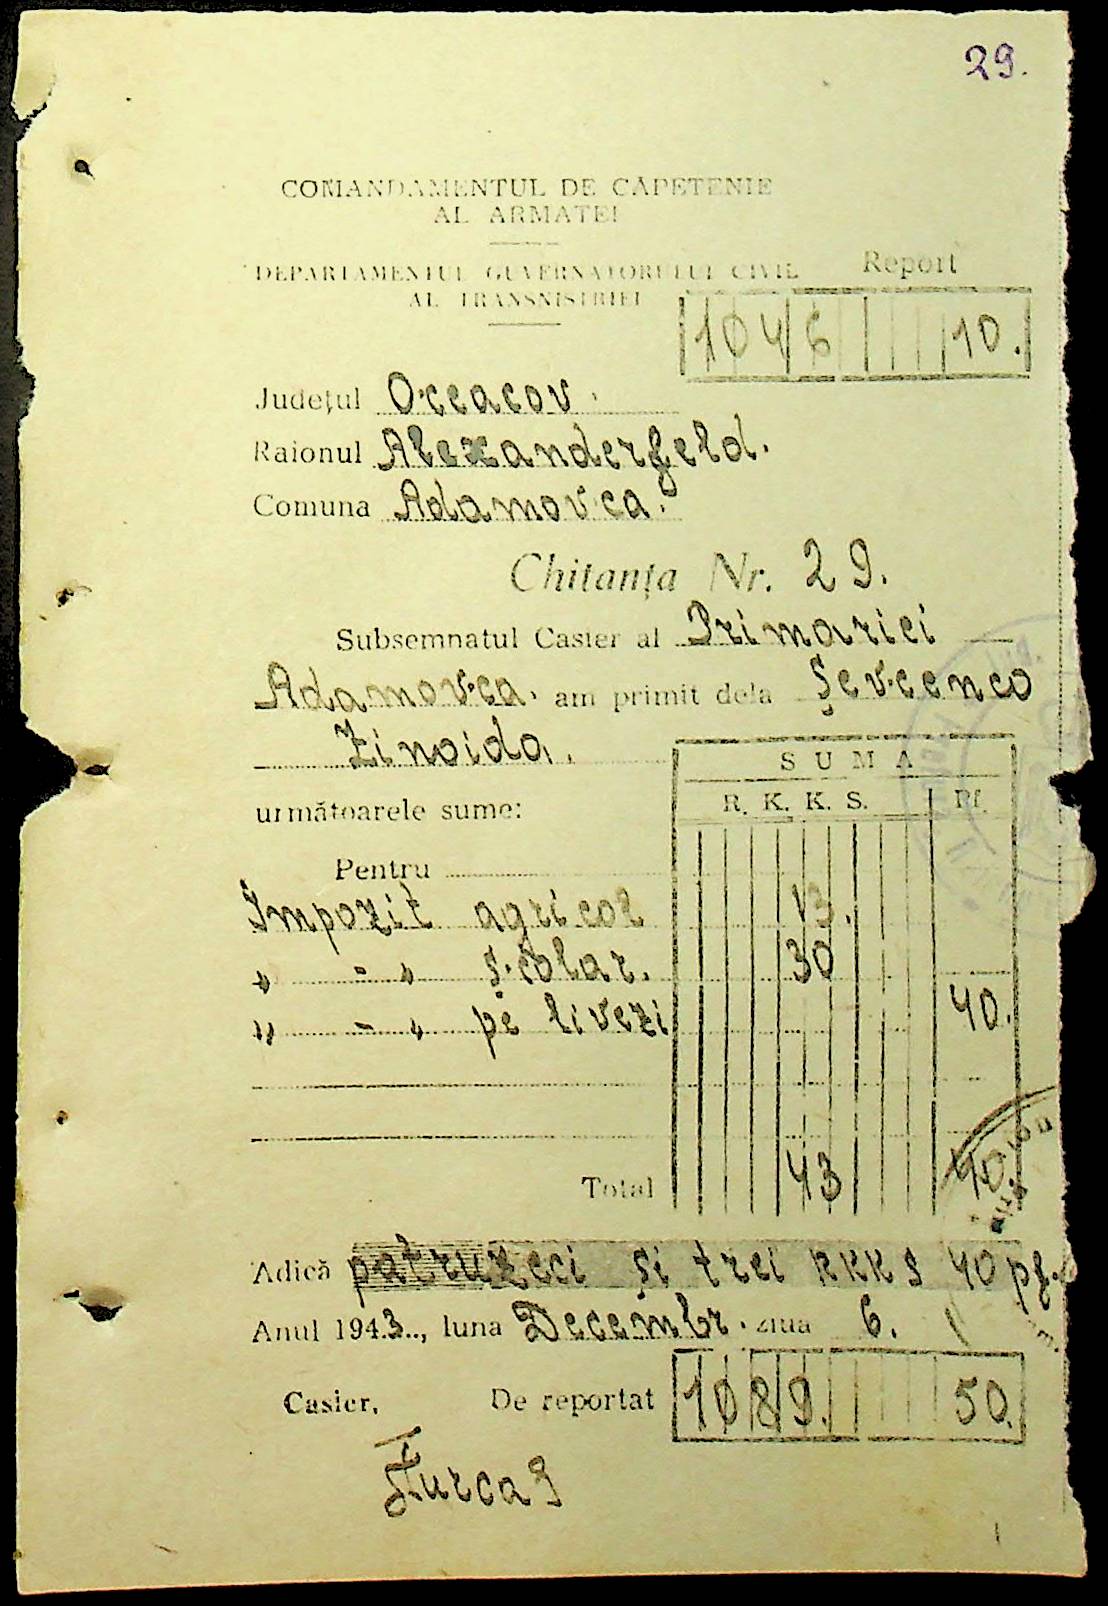 29.
COMANDAMENTUL DE CĂPETENIE
AL ARMATEI
DEPARTAMENTUL GUVERNATORULUI CIVIL
AL TRANSNISTRIEI
Report
1046 10.
Județul Oceacov.
Raionul Alexanderfeld.
Comuna Adamovca.
Chitanța Nr. 29.
Subsemnatul Casier al Primariei
Adamovca. am primit dela Șevcenco
Zinoida.
SUMA
R. K. K. S. Pf.
următoarele sume:
Pentru
Impozit agricol 13.
„ - „ școlar. 30
„ - „ pe livezi 40.
Total 43 40.
Adică patruzeci și trei RKKS 40 pf.
Anul 1943.., luna Decembr. ziua 6.
Casier, De reportat 1089. 50.